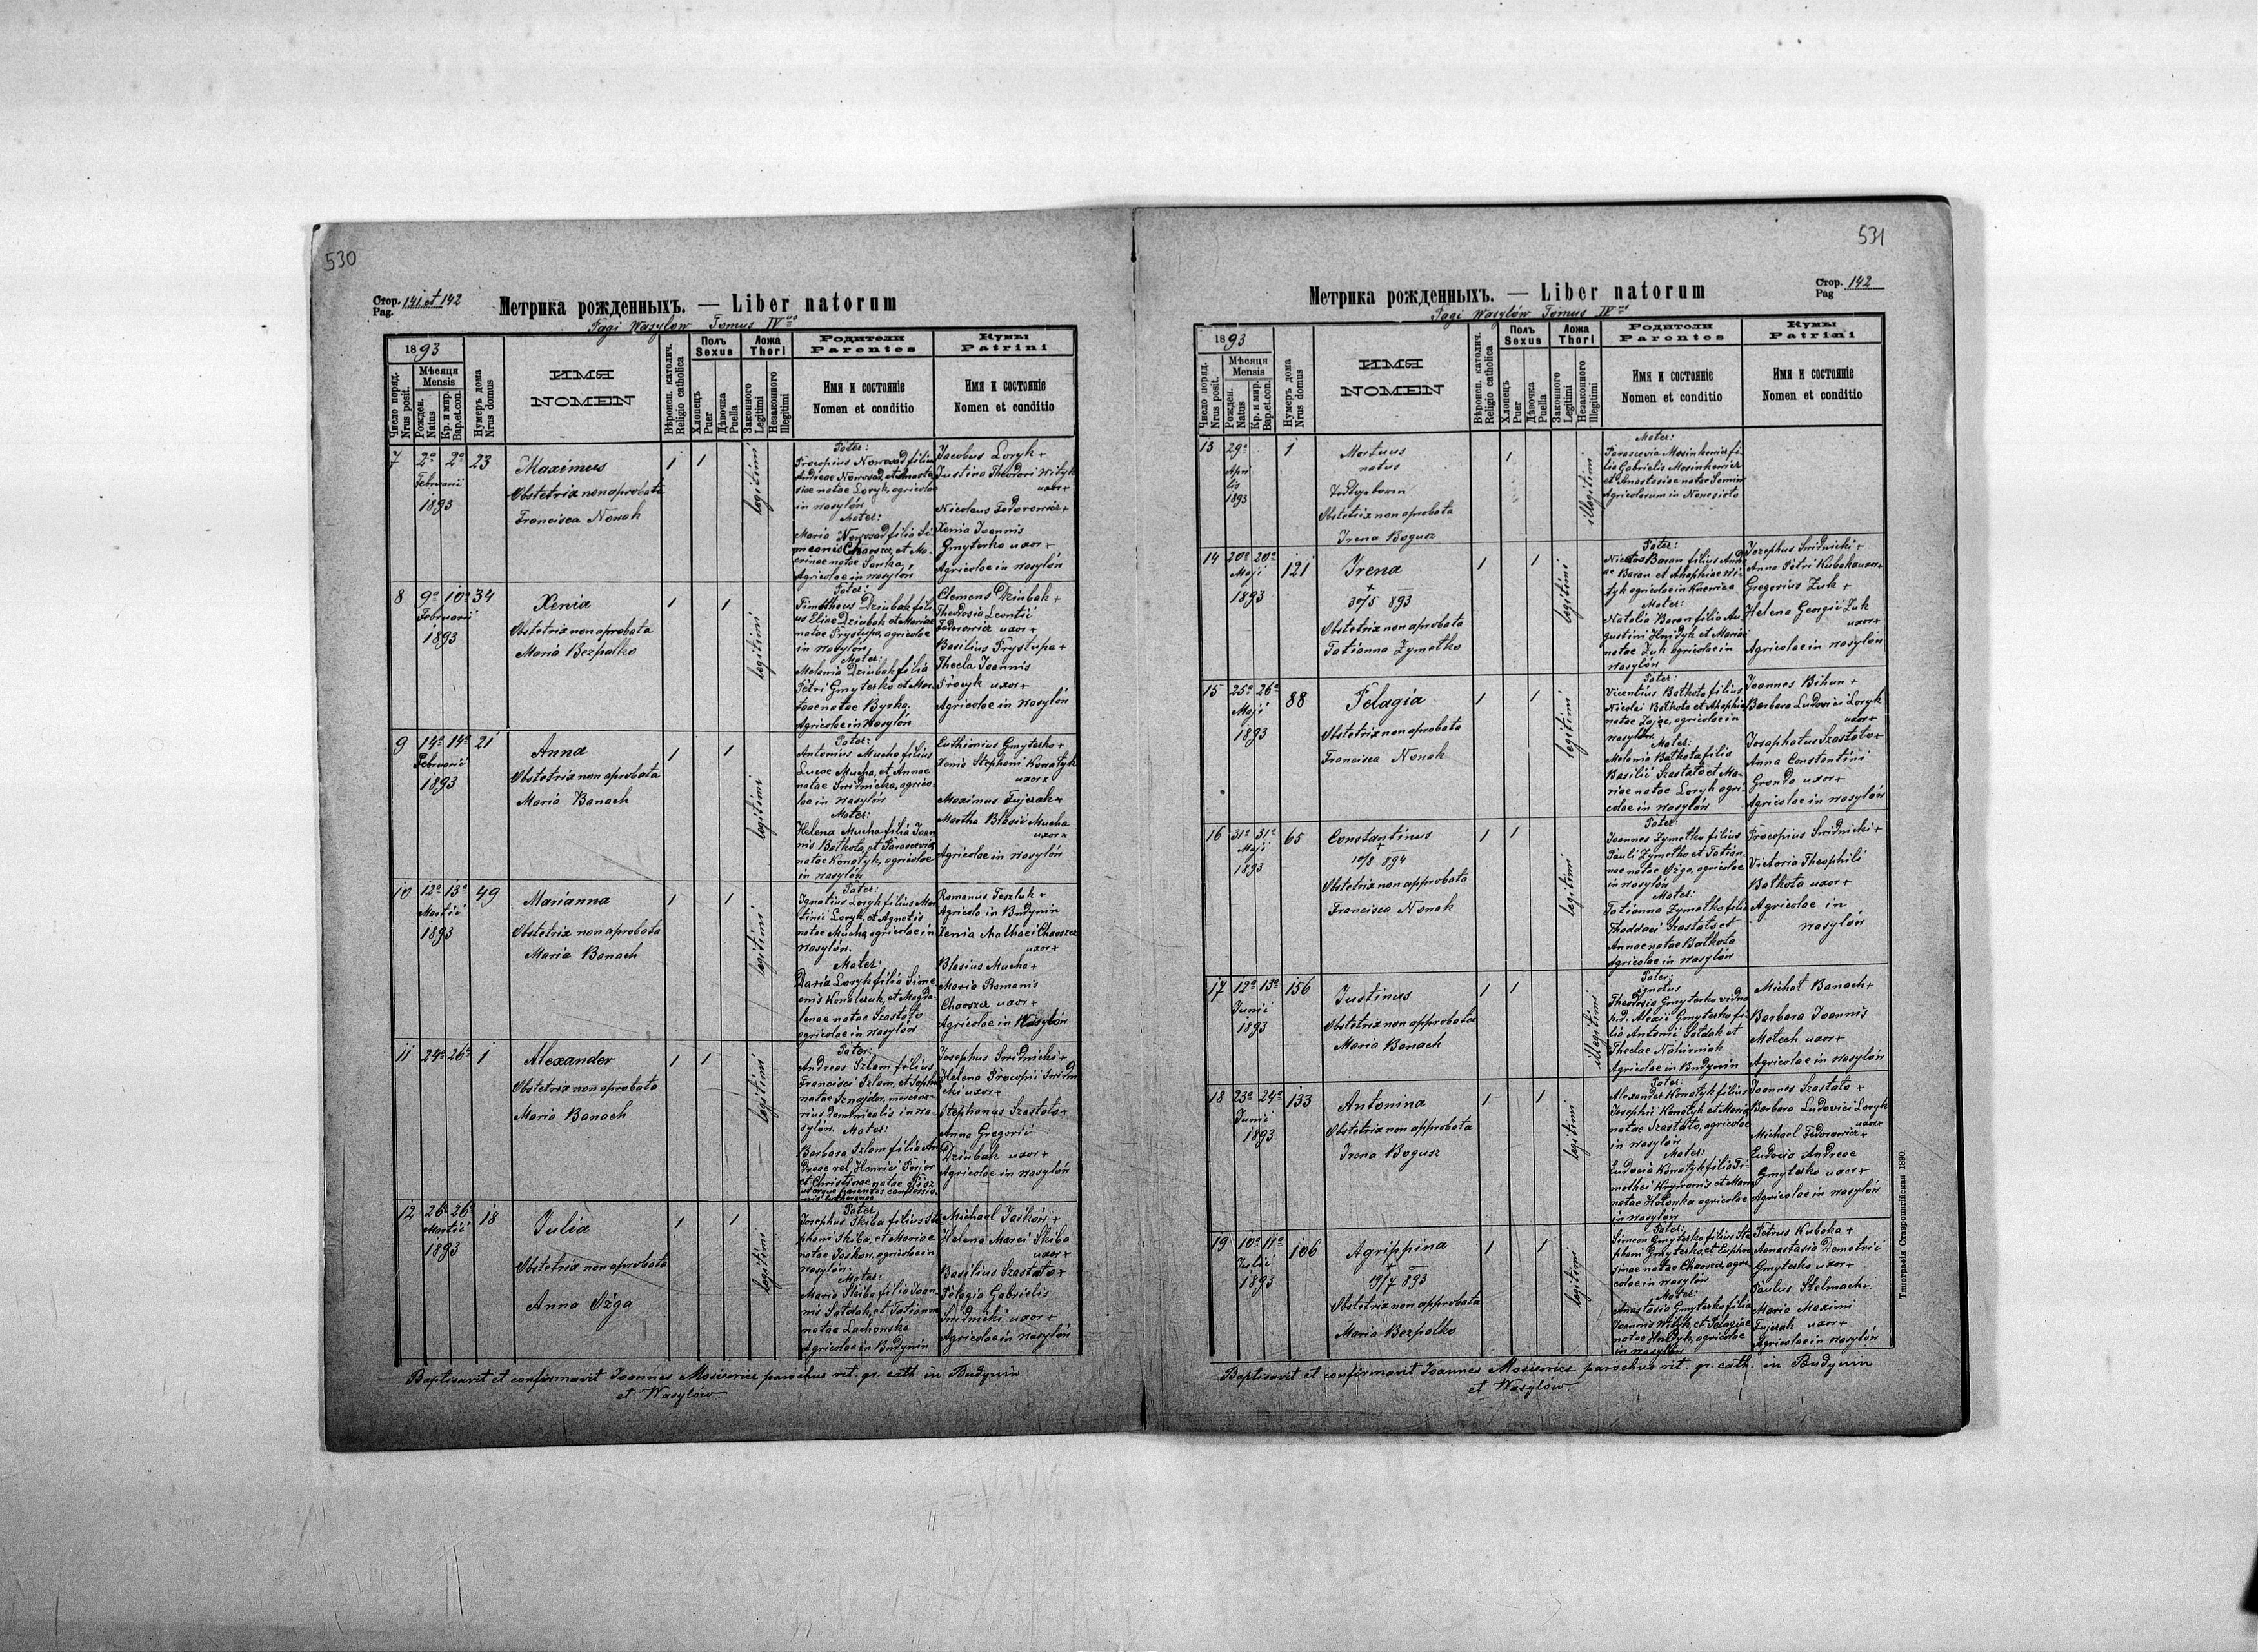 530
Стор. 141 et 142
Pag.
Метрика рожденныхъ. — Liber natorum
Pagi Wasylow Tomus IV
1893
Число поряд.
Nrus posit.
Мѣсяця
Mensis
Рожден.
Natus
Кр. и мир.
Bap.et.con.
Нумеръ дома
Nrus domus
ИМЯ
NOMEN
Вѣроисп. католич.
Religio catholica
Полъ
Sexus
Хлопецъ
Puer
Дѣвочка
Puella
Ложа
Thori
Законного
Legitimi
Незаконного
Illegitimi
Родители
Parentes
Имя и состояніе
Nomen et conditio
Кумы
Patrini
Имя и состояніе
Nomen et conditio
7 2a 2a 23
Februarii
1893
Maximus
Obstetrix non aprobata
Francisca Nowak
1 1
legitimi
Pater:
Procopius Nowosad filius
Andreae Nowosad, et Anasta
siae natae Loryk, agricolae
in Wasylów
Mater:
Maria Nowosad filia Si
meonis Chaoszcz, et Ma
rinae natae Sanka,
Agricolae in Wasylów
Jacobus Loryk +
Justina Theodori Wityk
uxor +
Nicolaus Fedorowicz +
Xenia Joannis
Gmyterko uxor +
Agricolae in Wasylów
8 9a 10a 34
Februarii
1893
Xenia
Obstetrix non aprobata
Maria Bezpalko
1 1
legitimi
Pater:
Timotheus Dziubak fili
us Eliae Dziubak et Mariae
natae Prystupa, agricolae
in Wasylów,
Mater:
Melania Dziubak filia
Petri Gmyterko et Mar
natae Byrka.
Agricolae in Wasylów
Clemens Dziubak +
Theodosia Leontii
Fedorowicz uxor +
Basilius Prystupa +
Thecla Joannis
Procyk uxor +
Agricolae in Wasylów
9 14a 14a 21
Februarii
1893
Anna
Obstetrix non aprobata
Maria Banach
1 1
legitimi
Pater:
Antonius Mucha filius
Lucae Mucha, et Annae
natae Smidnicka, agrico
lae in Wasylów
Mater:
Helena Mucha filia Joan
nis Bathota, et Parasceviae
natae Konatyk, agricolae
in Wasylów
Euthimius Gmyterko +
Xenia Stephani Konatyk
uxor x
Maximus Fujczak x
Martha Blasii Mucha
uxor x
Agricolae in Wasylów
10 12a 13a 49
Martii
1893
Marianna
Obstetrix non aprobata
Maria Banach
1 1
legitimi
Pater:
Ignatius Loryk filius Mar
tinii Loryk, et Agnetis
natae Mucha, agricolae in
Wasylów.
Mater:
Daria Loryk filia Sime
onis Kowalczuk, et Magda
lenae natae Szastato
agricolae in Wasylów
Romanus Teszluk +
Agricola in Budynin
Xenia Mathaei Chaoszcz
uxor +
Blasius Mucha +
Maria Romanis
Chaoszcz uxor +
Agricolae in Wasylów
11 24a 26a 1
Alexander
Obstetrix non aprobata
Maria Banach
1 1
legitimi
Pater:
Andreas Szlam filius
Francisci Szlam, et Sophi
natae Sznajder, mercena
rius dominicalis in Wa
sylów. Mater:
Barbara Szlam filia An
dreae rel. Henrici
et Christinae natae
Josephus Smidnicki +
Helena Procopii Smidn
cki uxor +
Stephanus Szastato +
Anna Gregorii
Dziubak uxor +
Agricolae in Wasylów
12 26a 26a 18
Martii
1893
Julia
Obstetrix non aprobata
Anna Ożga
1 1
legitimi
Pater
Josephus Skiba filius Ste
phani Skiba, et Mariae
natae Jaskow, agricolae in
Wasylów.
Mater:
Maria Skiba filia Joan
nis Sałdak, et Tatianna
natae Lachowska
Agricolae in Budynin
Michael Jaśków +
Helena Marci Skiba
uxor +
Basilius Szastato +
Pelagia Gabrielis
Smidnicki uxor +
Agricolae in Wasylów
Baptisavit et confirmavit Joannes Mosiewicz parochus rit. gr. cath in Budynin
et Wasylów
531
Стор. 142
Pag
Метрика рожденныхъ. — Liber natorum
Pagi Wasylów Tomus IV
1893
Число поряд.
Nrus posit.
Мѣсяця
Mensis
Рожден.
Natus
Кр. и мир.
Bap.et.con.
Нумеръ дома
Nrus domus
ИМЯ
NOMEN
Вѣроисп. католич.
Religio catholica
Полъ
Sexus
Хлопецъ
Puer
Дѣвочка
Puella
Ложа
Thori
Законного
Legitimi
Незаконного
Illegitimi
Родители
Parentes
Имя и состояніе
Nomen et conditio
Кумы
Patrini
Имя и состояніе
Nomen et conditio
13 29a 1
Apri
lis
1893
Mortuus
natus
Todtgeboren
Obstetrix non aprobata
Irena Bogusz
1
illegitimi
Mater:
Parascevia Mosinkewicz fi
lia Gabrielis Mosinkewicz
et Anastasiae natae Semin
Agricolarum in
14 20a 20a 121
Maji
1893
Irena
+
30/5 893
Obstetrix non aprobata
Tatianna Zymetko
1 1
legitimi
Pater:
Nicetas Baran filius Andr
ae Baran et Ahaphiae Wi
tyk agricolae in
Mater:
Natalia Baran filia Au
gustini Hnidyk et Mariae
natae Zuk agricolae in
Wasylów
Josephus Smidnicki +
Anna Petri Kubaha uxor +
Gregorius Zuk +
Helena Georgii Zuk
uxor +
Agricolae in Wasylów
15 25a 26a 88
Maji
1893
Pelagia
Obstetrix non aprobata
Francisca Nowak
1 1
legitimi
Pater:
Vicentius Bathota filius
Nicolai Bathota et Ahaphiae
natae Zając, agricolae in
Wasylów.
Mater:
Melania Bathota filia
Basilii Szastato et Ma
riae natae Loryk agri
colae in Wasylów
Joannes Bihun +
Barbara Ludovici Loryk
uxor +
Josaphatus Szastato +
Anna Constantini
Gronda uxor +
Agricolae in Wasylów
16 31a 31a 65
Maji
1893
Constantinus
+
10/8 894
Obstetrix non approbata
Francisca Nowak
1 1
legitimi
Pater:
Joannes Zymetko filius
Pauli Zymetko et Tatian
nae natae Ożga, agricolae
in Wasylów
Mater:
Tatianna Zymetko filia
Thaddaei Szastato et
Annae natae Bathota
Agricolae in Wasylów
Procopius Smidnicki +
Victoria Theophili
Bathota uxor +
Agricolae in
Wasylów
17 12a 13a 156
Junii
1893
Justinus
Obstetrix non approbata
Maria Banach
1 1
illegitimi
Pater:
ignotus
Theodosia Gmyterko vidua
p.d. Alexii Gmyterko fi
lia Antonii Sałdak et
Theclae Nahirniak
Agricolae in Budynin
Michał Banach +
Barbara Joannis
Motech uxor +
Agricolae in Wasylów
18 23a 24a 133
Junii
1893
Antonina
Obstetrix non approbata
Irena Bogusz
1 1
legitimi
Pater:
Alexander Konatyk filius
Josephi Konatyk et Maria
natae Szastato, agricolae
in Wasylów
Mater:
Eudocia Konatyk filia Ti
mothei et Maria
natae agricolae
in Wasylów
Joannes Szastato +
Barbara Ludovici Loryk
uxor +
Michael Fedorowicz +
Eudocia Andreae
Gmyterko uxor +
Agricolae in Wasylów
19 10a 11a 106
Julii
1893
Agrippina
+
19/7 893
Obstetrix non approbata
Maria Bezpalko
1 1
legitimi
Pater:
Simeon Gmyterko filius Ste
phani Gmyterko, et Euphro
sinae natae Chaoszcz, agri
colae in Wasylów
Mater:
Anastasia Gmyterko filia
Joannis Wityk et Pelagiae
natae Hnidyk, agricolae
in Wasylów
Petrus Kubaha +
Anastasia Demetrii
Gmyterko uxor +
Paulus Stelmach +
Maria Maximi
Fujczak uxor +
Agricolae in Wasylów
Baptisavit et confirmavit Joannes Mosiewicz parochus rit. gr. cath. in Budynin
et Wasylów
Типографія Ставропигійская 1890.